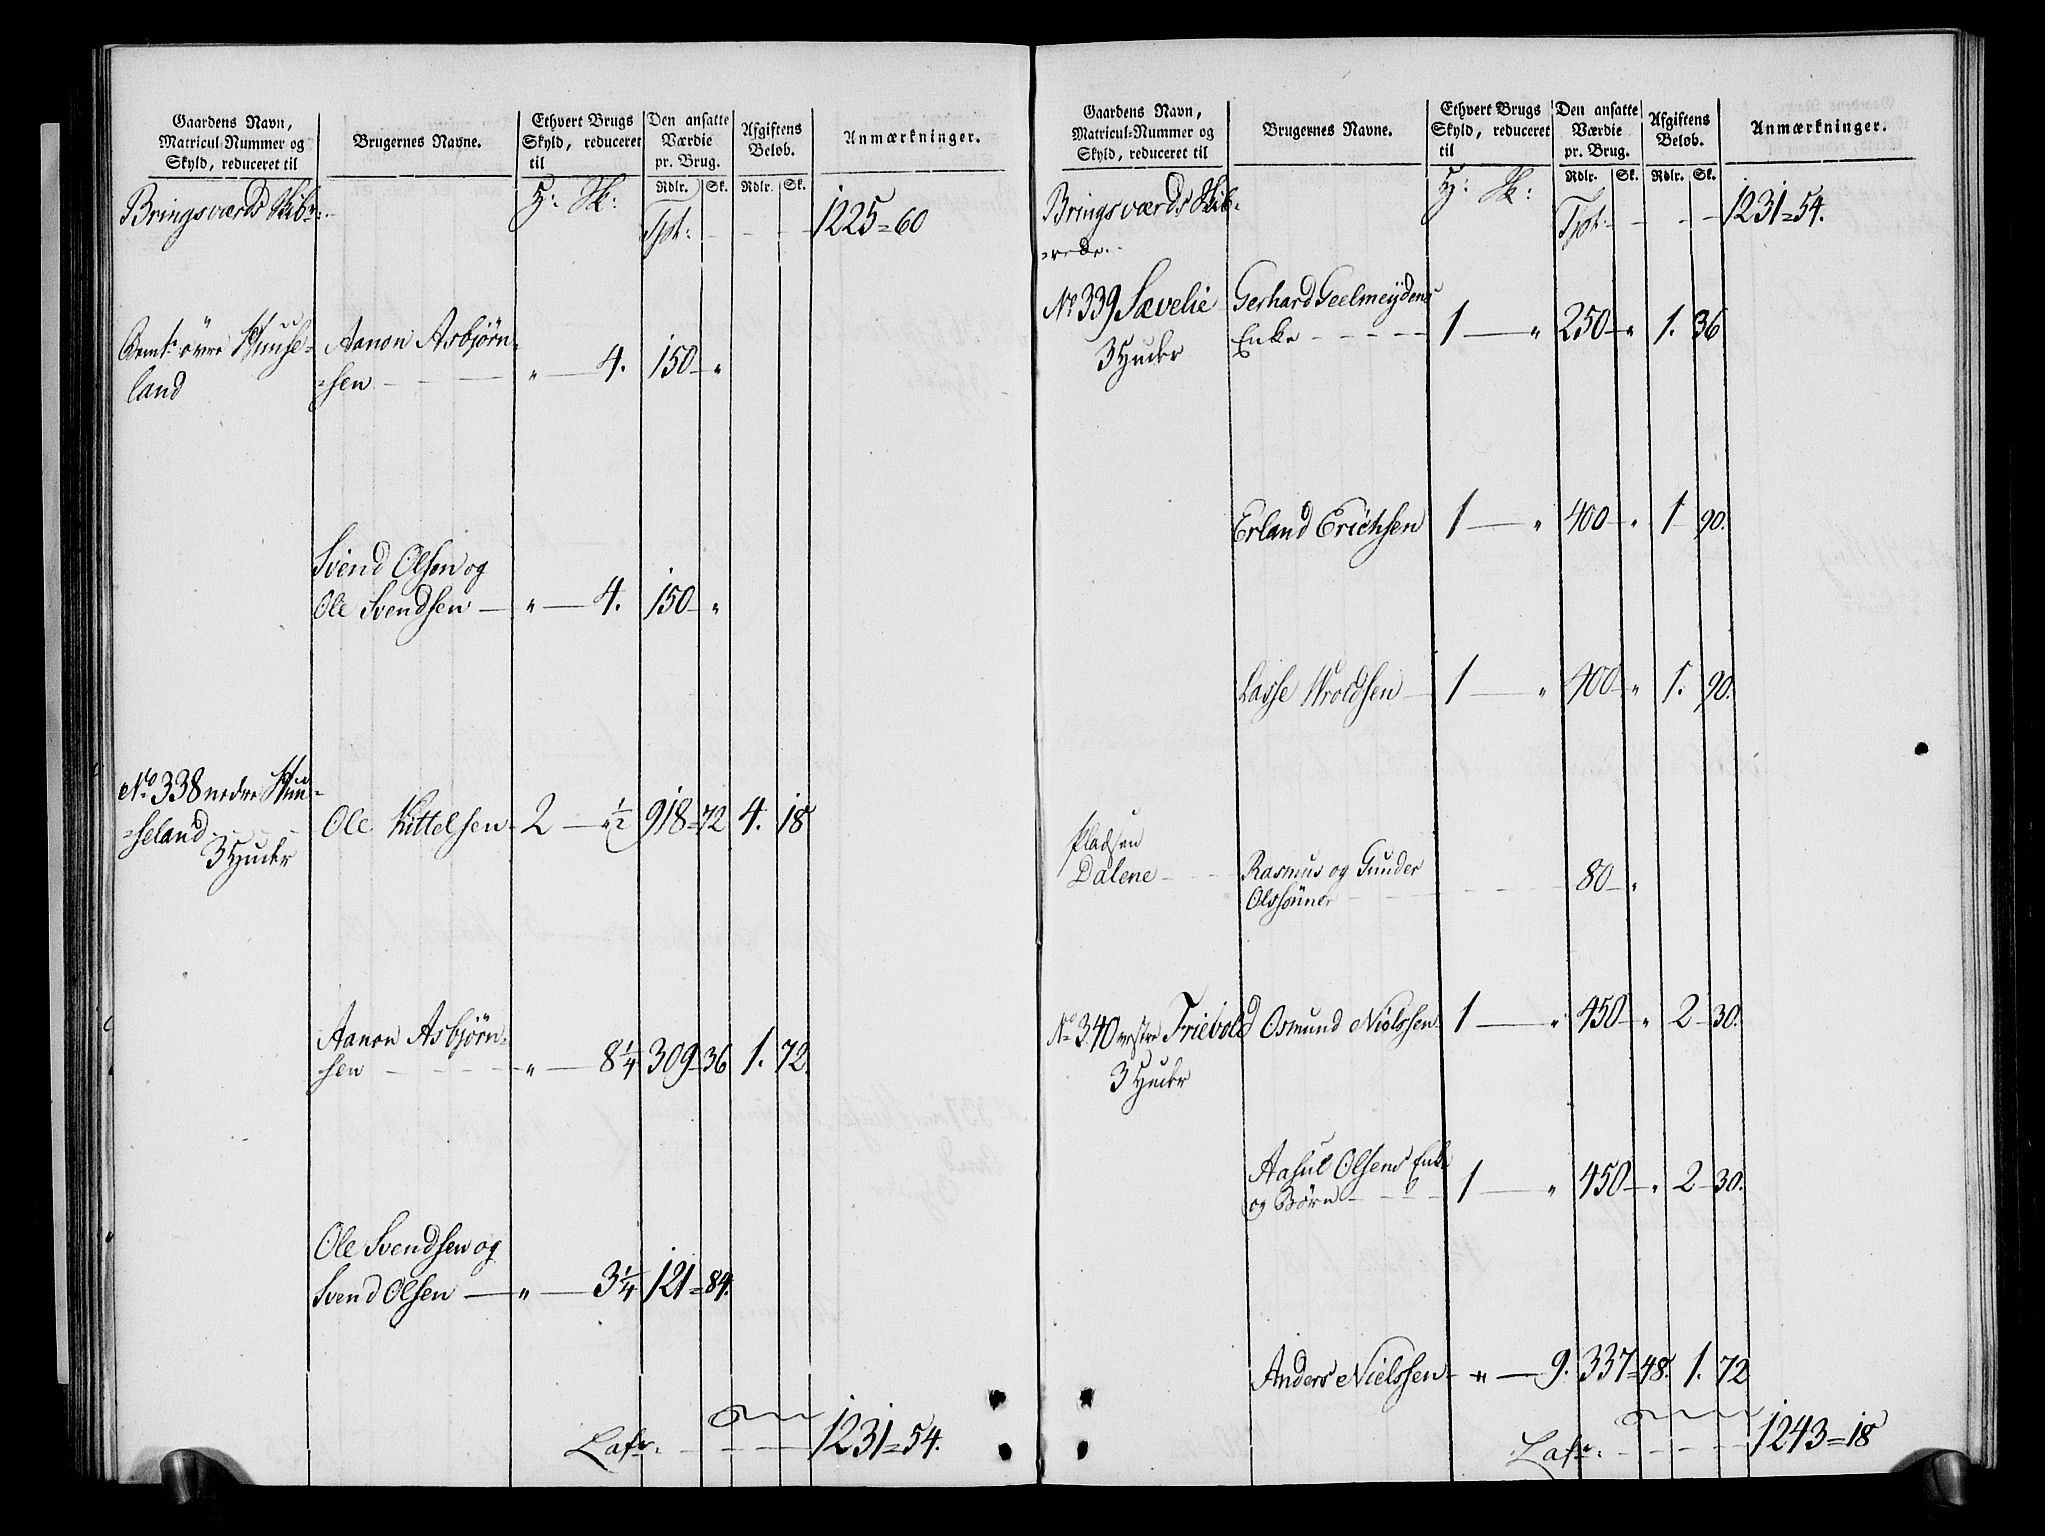 Gaardens Navn,
Matricul-Nummer og
Skyld, reduceret til
Brugernes Navne.
Ethvert Brugs
Skyld, reduceret
til
Den ansatte
Værdie
pr. Brug.
Rdlr. Sk.
Afgiftens
Beløb.
Rdlr. Sk.
Anmærkninger.
Bringsværds Skibr:
H: Sk:
Tpt: 1225 = 60
øvre
land
Aanon Asbjørn-
=sen " 4. 150 "
Svend Olsen og
Ole Svendsen " 4. 150 "
No 338 nedre
=seland
3 Huder
Ole Kittelsen 2 1/2 918 = 72 4. 18
Aanon Asbjørn=
sen " 8 1/4 309 36 1. 72.
Ole Svendsen og
Svend Olsen " 3 1/4 121 = 84.
Lafr. 1231 = 54.
Gaardens Navn,
Matricul-Nummer og
Skyld, reduceret til
Brugernes Navne.
Ethvert Brugs
Skyld, reduceret
til
Den ansatte
Værdie
pr. Brug.
Rdlr. Sk.
Afgiftens
Beløb.
Rdlr. Sk.
Anmærkninger.
Bringsværds Skib=
=rede.
H: Sk:
Tpt: 1231 = 54.
No 339 Sævelie
3 Huder
Gerhard Geelmeydens
Enke 1 " 250 " 1. 36
Erland Erichsen 1 " 400 " 1 90.
Lasse Wroldsen 1 " 400 " 1. 90.
Pladsen
Dalene
Rasmus og Gunder
Olssønner 80 "
No 340 vestre Friebold
3 Huder
Osmund Nielssen 1 " 450 " 2 30.
Aasul Olsens Enke
og Børn 1 " 450 " 2 30.
Anders Nielssen " 9. 337 = 48. 1. 72
Lafr. 1243 = 18